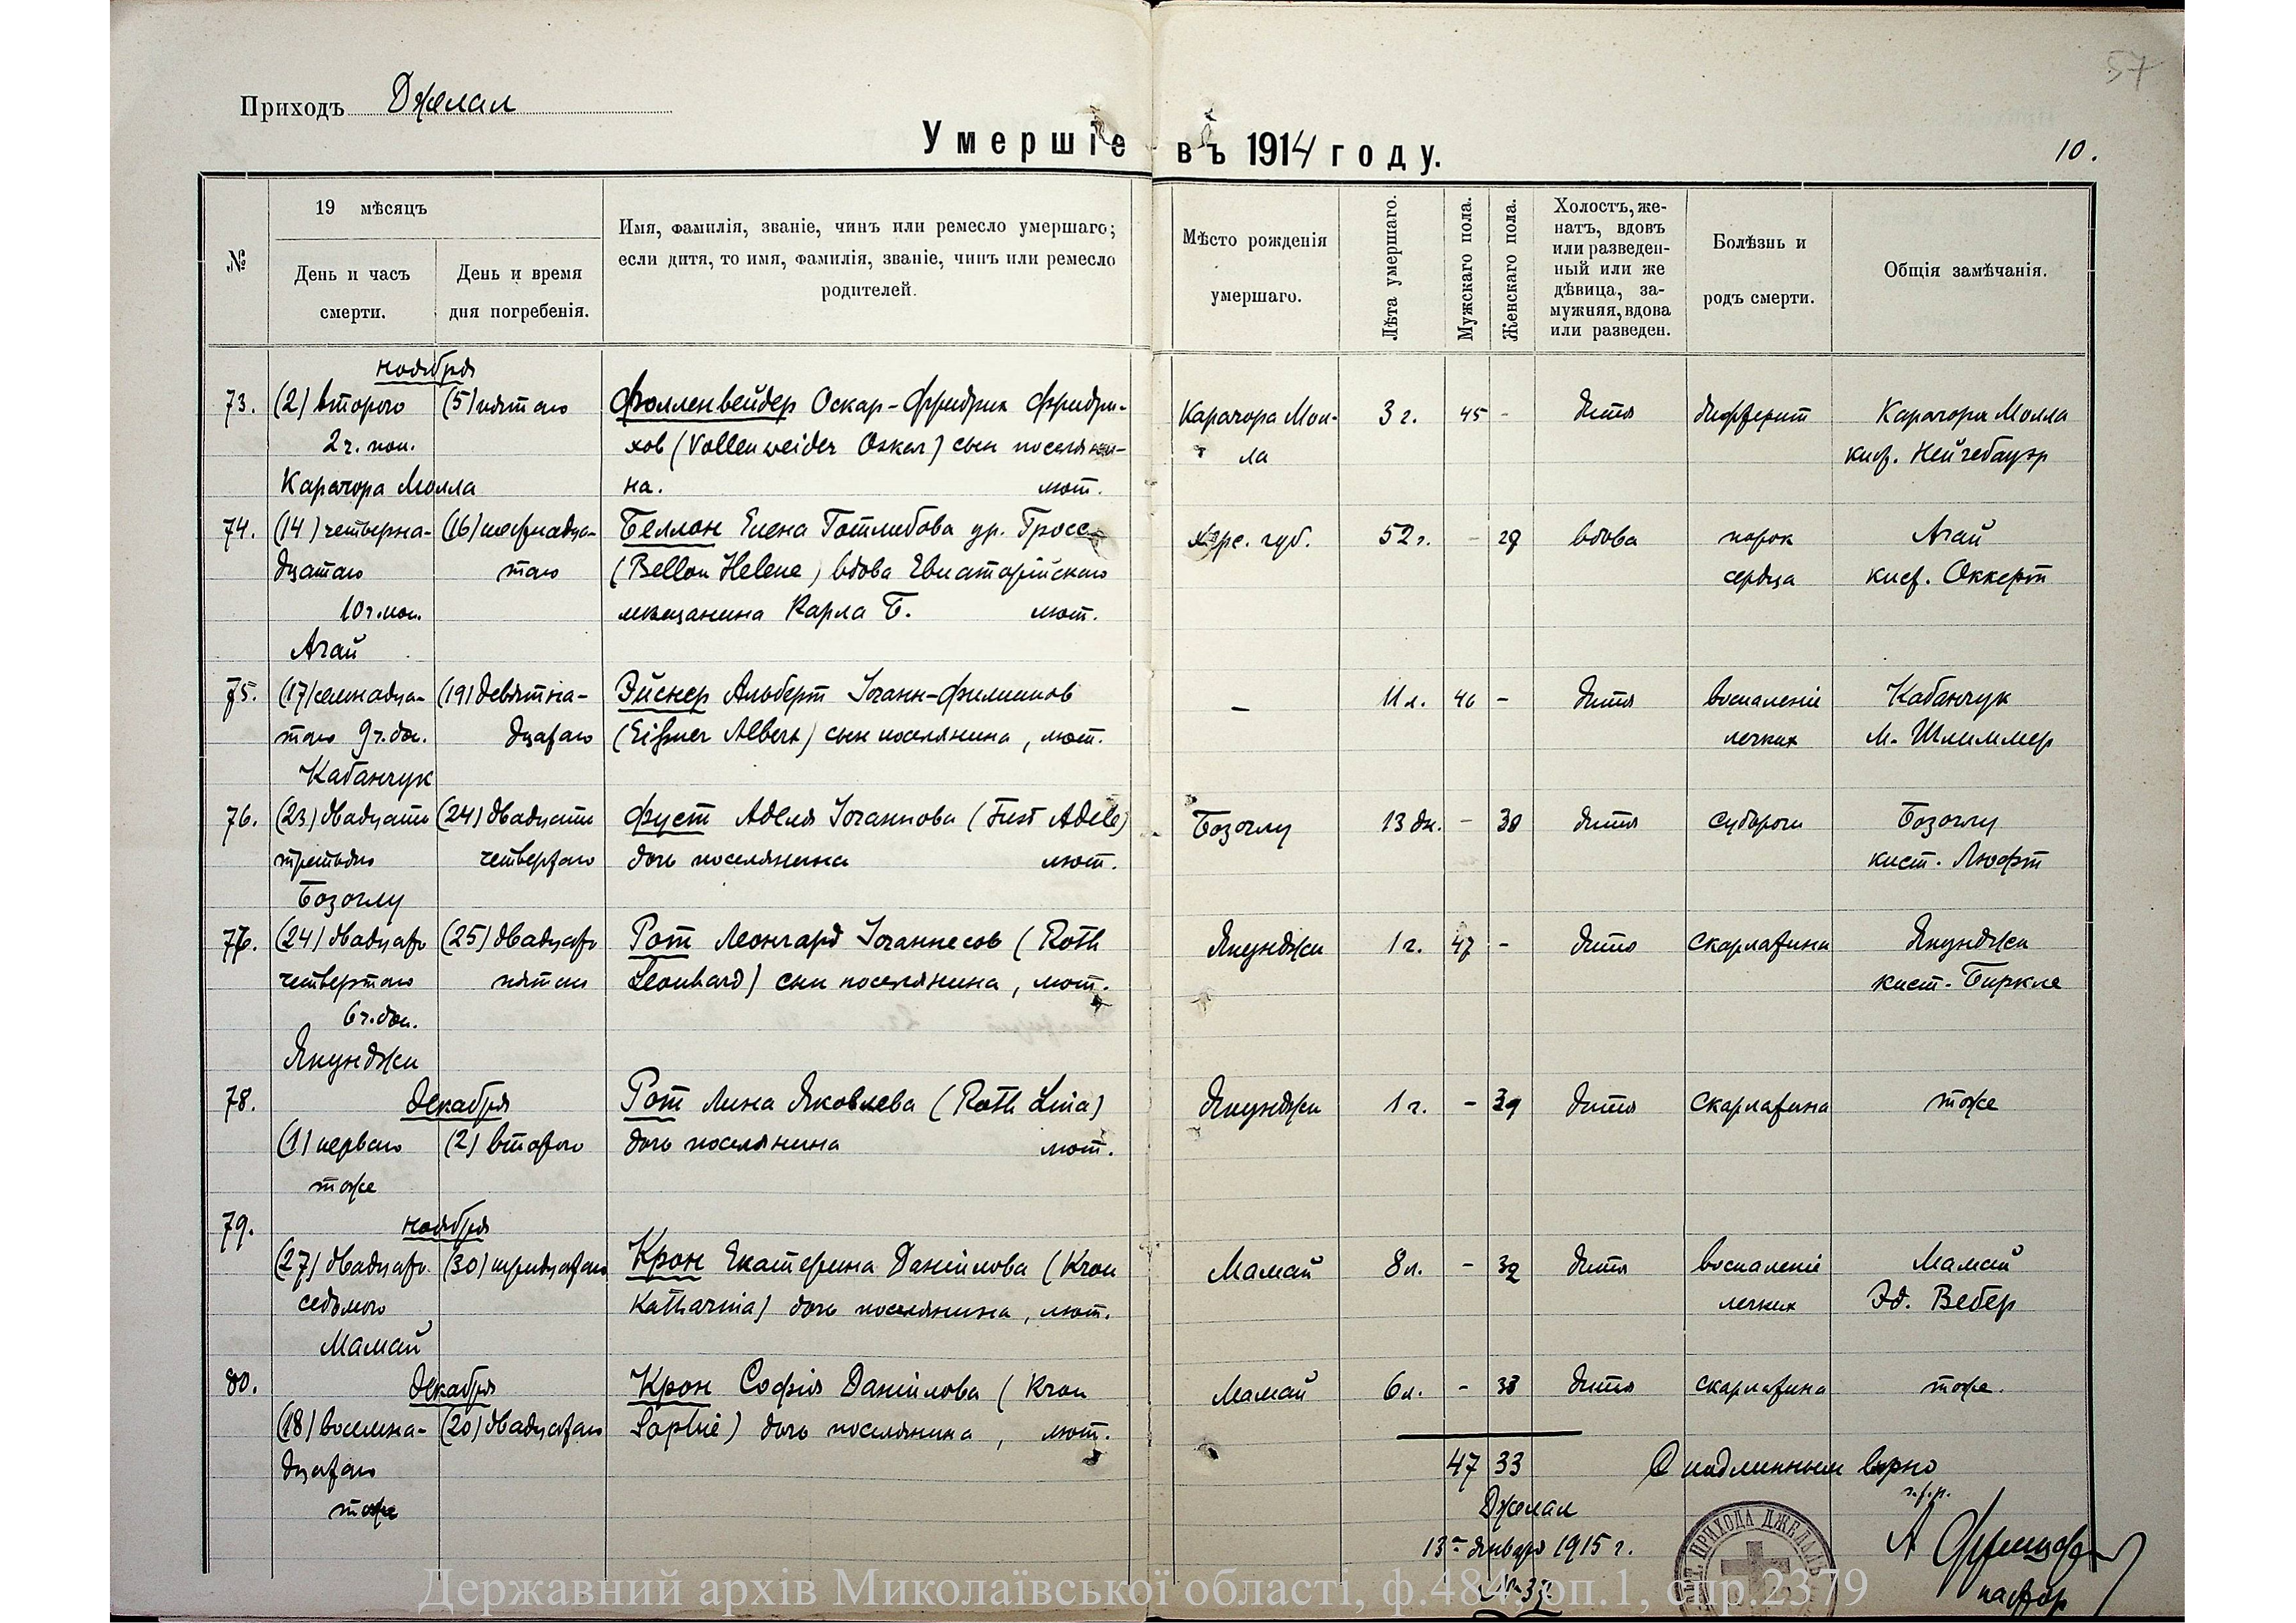 57
Приходъ Джелал
Умершіе въ 1914 году.
10.
№
19 мѣсяцъ
День и часъ смерти.
День и время дня погребенія.
Имя, фамилія, званіе, чинъ или ремесло умершаго; если дитя, то имя, фамилія, званіе, чинъ или ремесло родителей.
Мѣсто рожденія умершаго.
Лѣта умершаго.
Мужскаго пола.
Женскаго пола.
Холостъ, женатъ, вдовъ или разведенный или же дѣвица, замужняя, вдова или разведен.
Болѣзнь и родъ смерти.
Общія замѣчанія.
ноября
73. (2) второго (5) пятаго Фолленвейдер Оскар-Фридрих Фридри- Карагора Мол- 3 г. 45 - дитя дифтерит Карагора Молла
2 ч. поп. хов (Vollenweider Oskar) сын поселяни- ла кист. Нейгебауэр
Карагора Молла на. лют.
74. (14) четырна- (16) шестнадца- Беллон Елена Готлибова ур. Гросс Хэрс. губ. 52 г. - 29 вдова порок Агай
дцатаго таго (Bellon Helene) вдова Евпаторійскаго сердца кист. Оккерт
10 ч. поп. мѣщанина Карла Б. лют.
Агай
75. (17) семнадца- (19) девятна- Эйснер Альберт Іоганн-Филиппов - 11 л. 46 - дитя воспаленіе Кабанчук
таго 9 ч. дп. дцатаго (Eißner Albert) сын поселянина, лют. легких М. Шлиммер
Кабанчук
76. (23) двадцать (24) двадцать Фуст Аделя Іоганнова (Fust Adele) Бозоглу 13 дн. - 30 дитя судороги Бозоглу
третьяго четвертаго дочь поселянина лют. кист. Люфт
Бозоглу
77. (24) двадцать (25) двадцать Рот Леонгард Іоганнесов (Roth Якунджи 1 г. 47 - дитя скарлатина Якунджи
четвертаго пятаго Leonhard) сын поселянина, лют. кист. Биркле
6 ч. дп.
Якунджи
78. декабря Рот Лина Яковлева (Roth Lina) Якунджи 1 г. - 31 дитя скарлатина тоже
(1) перваго (2) второго дочь поселянина лют.
тоже
79. ноября
(27) двадцать (30) тридцатаго Крон Екатерина Даніилова (Kron Мамай 8 л. - 32 дитя воспаленіе Мамай
седьмого Katharina) дочь поселянина, лют. легких Эд. Вебер
Мамай
80. декабря Крон Софія Даніилова (Kron Мамай 6 л. - 33 дитя скарлатина тоже.
(18) восемна- (20) двадцатаго Sophie) дочь поселянина, лют.
дцатаго
тоже
47 33 С подлинным вѣрно
Джелал
13го января 1915 г.
№ 37
ПРИХОДА ДЖЕЛАЛЪ
пастор
Державний архів Миколаївської області, ф.484, оп.1, спр.2379